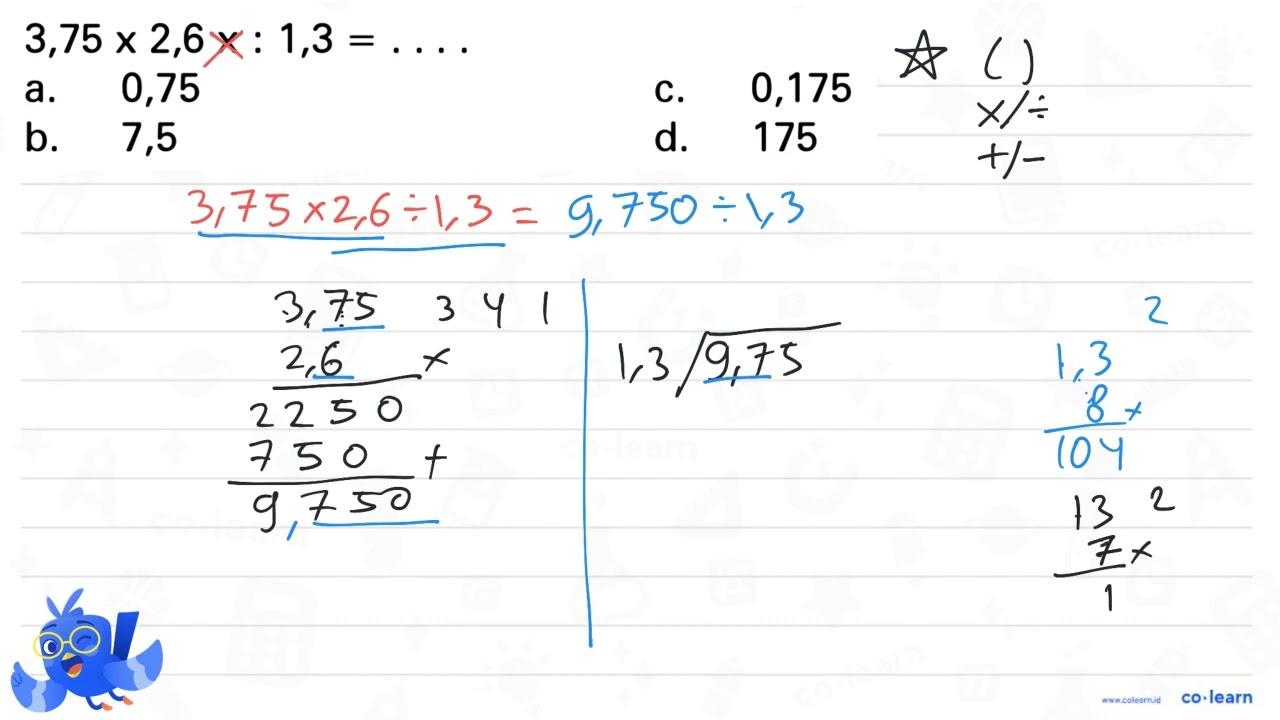 3,75 x 2,6 x : 1,3 = . . . .
a. 0,75
b. 7,5
c. 0,175
d. 175
( )
×/÷
+/-
3,75 × 2,6 ÷ 1,3 = 9,750 ÷ 1,3
3,75 3 4 1
2,6 ×
2 2 5 0
7 5 0 +
9,750
1,3 9,75
2
1,3
8 ×
104
13 2
7 ×
1
co·learn
www.colearn.id co·learn